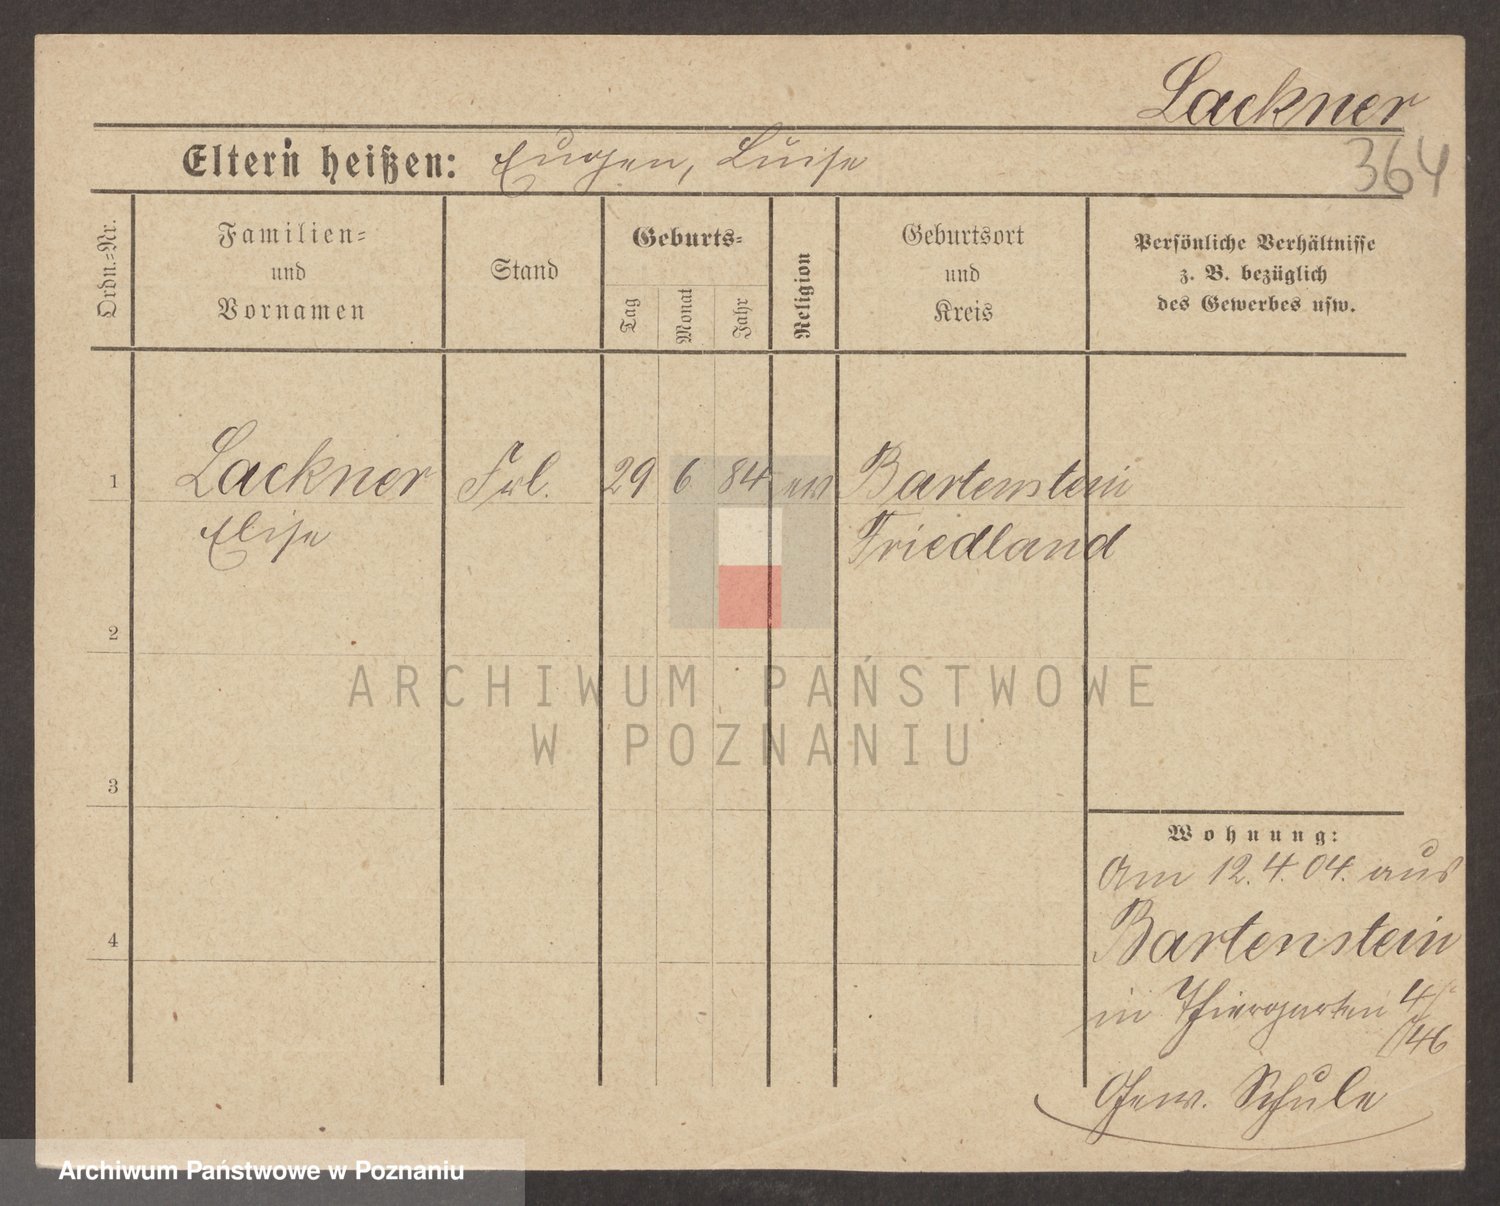 Lackner
364
Eltern heißen: Eugen, Luise
Ordn.-Nr.
Familien-
und
Vornamen
Stand
Geburts-
Tag
Monat
Jahr
Religion
Geburtsort
und
Kreis
Persönliche Verhältnisse
z. B. bezüglich
des Gewerbes usw.
1 Lackner Frl. 29 6 84 ev Bartenstein
Elise Friedland
2
3
4
Wohnung:
Am 12.4.04. aus
Bartenstein
in Thiergarten 4
46
Gew. Schule
ARCHIWUM PAŃSTWOWE
W POZNANIU
Archiwum Państwowe w Poznaniu